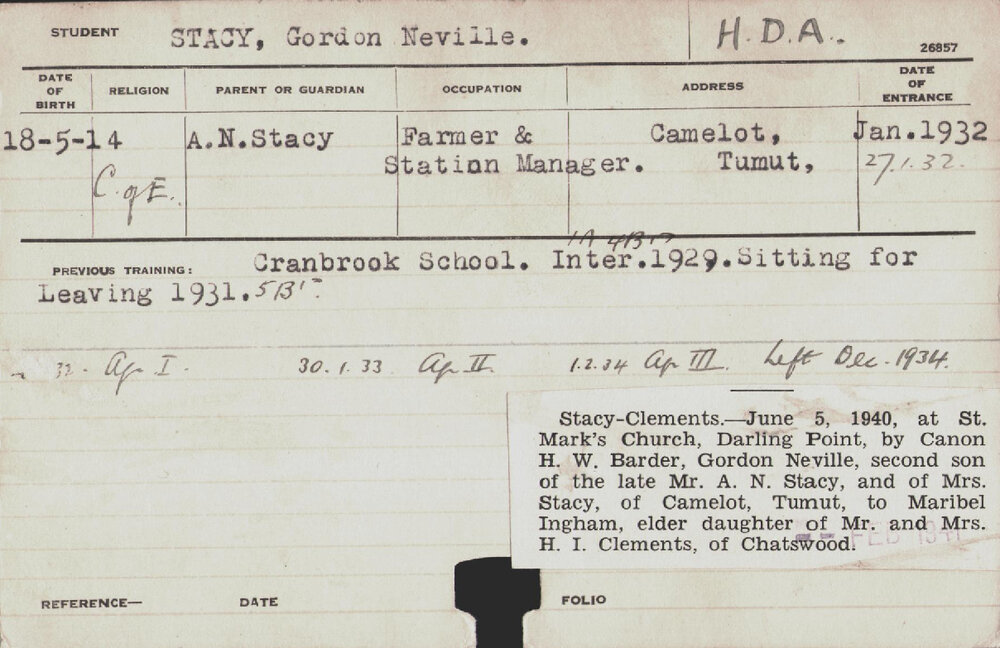 STUDENT STACY, Gordon Neville. H.D.A.. 26857
DATE OF BIRTH RELIGION PARENT OR GUARDIAN OCCUPATION ADDRESS DATE OF ENTRANCE
18-5-14 A.N.Stacy Farmer & Camelot, Jan.1932
Station Manager. Tumut, 27.1.32.
C. of E..
PREVIOUS TRAINING: Cranbrook School. Inter.1929.Sitting for
Leaving 1931.
32. Ag I. 30.1.33 Ag II. 1.2.34 Ag III. Left Dec. 1934.
Stacy-Clements.—June 5, 1940, at St.
Mark's Church, Darling Point, by Canon
H. W. Barder, Gordon Neville, second son
of the late Mr. A. N. Stacy, and of Mrs.
Stacy, of Camelot, Tumut, to Maribel
Ingham, elder daughter of Mr. and Mrs.
H. I. Clements, of Chatswood.
FEB 1941
REFERENCE— DATE FOLIO